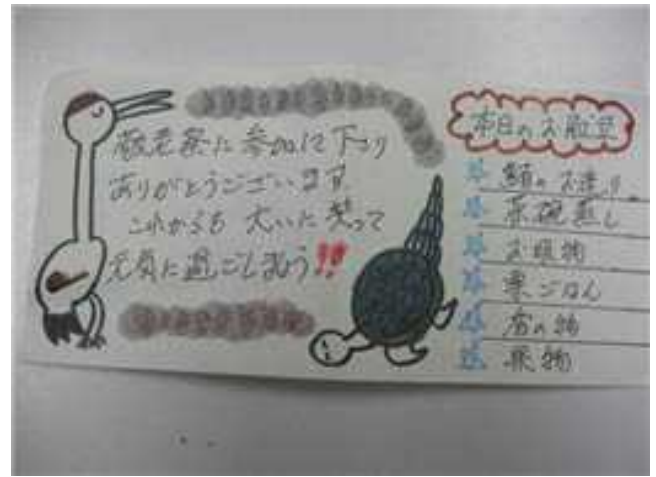 敬老祭に参加して下さり
ありがとうございます
これからも 大いに笑って
元気に過ごしましょう!!
本日のお献立
鯛のお造り
茶碗蒸し
お吸物
栗ごはん
香の物
果物